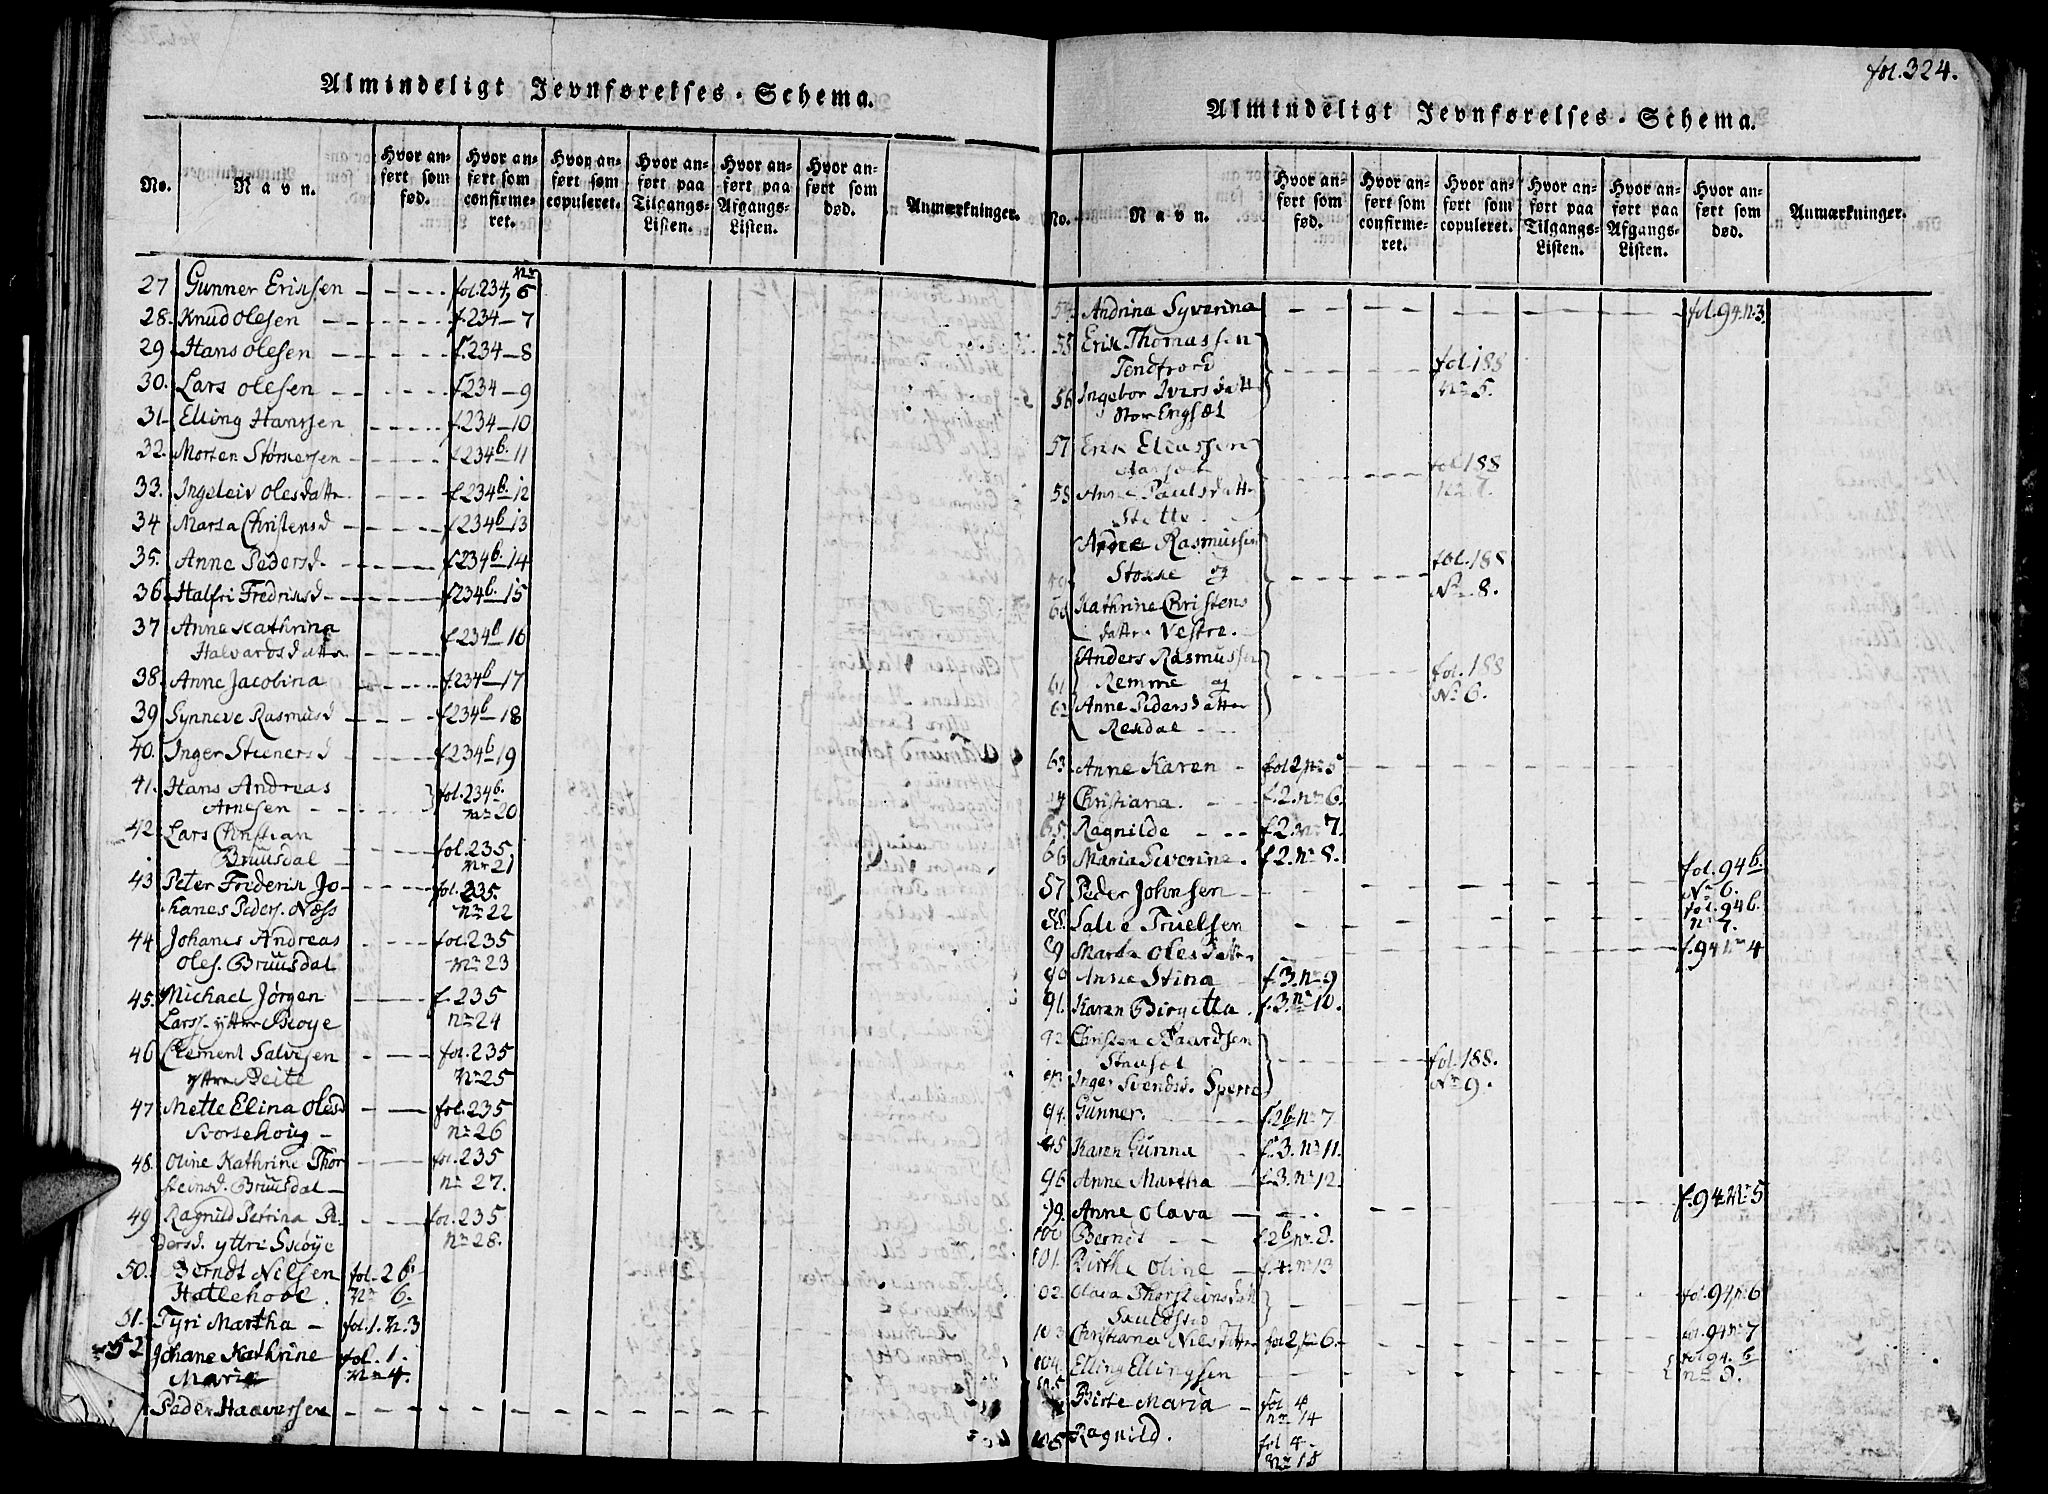 fol. 324.
Almindeligt Jevnførelses-Schema.
No. Navn. Hvor anført som fød. Hvor anført som confirmeret. Hvor anført som copuleret. Hvor anført paa Tilgangs-Listen. Hvor anført paa Afgangs-Listen. Hvor anført som død. Anmærkninger.
27 Gunner Eriksen fol. 234, Nr 6
28. Knud Olesen f. 234 - 7
29 Hans Olesen f. 234 - 8
30. Lars Olesen f. 234 - 9
31 Elling Hanssen f. 234 - 10
32. Morten f. 234 b. 11
33. Ingeleiv Olesdattr f. 234 b. 12
34 Marta Christensd f. 234 b 13
35. Anne Pedersd. f. 234 b. 14
36 Halfri Fredriksd f. 234 b. 15
37 Anne Kathrina
Halvardsdattr f. 234 b 16
38. Anne Jacobina f. 234 b 17
39 Synneve Rasmusd f. 234 b 18
40. Inger Steenersd f. 234 b 19
41. Hans Andreas fol. 234 b.
Arnesen Nr 20
42 Lars Christian fol. 235
Bruusdal Nr 21
43 Peter Frederik Jo- fol. 235.
hanes Peders. Næss Nr 22
44 Johanes Andreas fol. 235
Oles. Bruusdal Nr 23
45. Michael Jørgen f. 235
Larss. yttre Skoye Nr 24
46 Clement Salvesen fol. 235
yttre Beite Nr 25
47 Mette Elina Olesd fol. 235
Nr 26
48. Oline Kathrine Thor fol. 235
steinsd. Bruusdal Nr 27.
49 Ragnild Petrina Pe- fol. 235
dersd. yttre Skoye Nr 28.
50. Berndt Nilsen fol. 2 b.
Hatlehoel. Nr 6.
51. Tyri Martha fol. 1. N. 3
52 Johane Kathrine fol. 1.
Maria Nr 4.
Peder Haaversen
Almindeligt Jevnførelses-Schema.
No. Navn. Hvor anført som fød. Hvor anført som confirmeret. Hvor anført som copuleret. Hvor anført paa Tilgangs-Listen. Hvor anført paa Afgangs-Listen. Hvor anført som død. Anmærkninger.
54 Andrina Syverina fol. 94. n. 3.
55 Erik Thomassen
Tendfiord fol. 188
56 Ingebor Iversdattr Nr 5.
57 Erik Eliassen
fol. 188
58 Anne Paulsdattr Nr 7.
Stette
Rasmussen fol. 188
Stokke og Nr 8.
60 Kathrine Christens
dattr Vestre.
Anders Rasmussen fol. 188
61 Remme og Nr 6.
62 Anne Pedersdatter
Rekdal
63 Anne Karen fol 2, nr 5
Christiana. f. 2. nr 6.
65. Ragnilde f. 2. nr 7.
66 Maria Severine. f. 2. nr 8.
57 Peder Johnsen fol. 94 b. Nr 6.
88. Salve Truelsen fol. 94 b. nr 7.
89 Marta Olesdattr f. 94 nr 4
Anne Stina f. 3. nr 9
91. Karen Birgitta. f. 3. nr 10.
92 Christen
fol. 188.
93 Inger Svendsd. Sperre Nr 9.
94. Gunner. f. 2 b. nr 7
Karen Gurina f. 3. nr 11.
96 Anne Martha f. 3. nr 12.
Anne Olava f. 94 nr 5
100 Berndt f. 2 b nr 8.
101. Birthe Oline nr 13
102. Olava Thorsteinsdatt fol. 94, nr 6
103 Christiana Nilsdattr fol. 2 nr 6. fol. 94 nr 7
104. Elling Ellingsen fol. 94. b
105 nr 8.
Birte Maria fol 4 nr 14
Ragnild. fol 4. nr 15